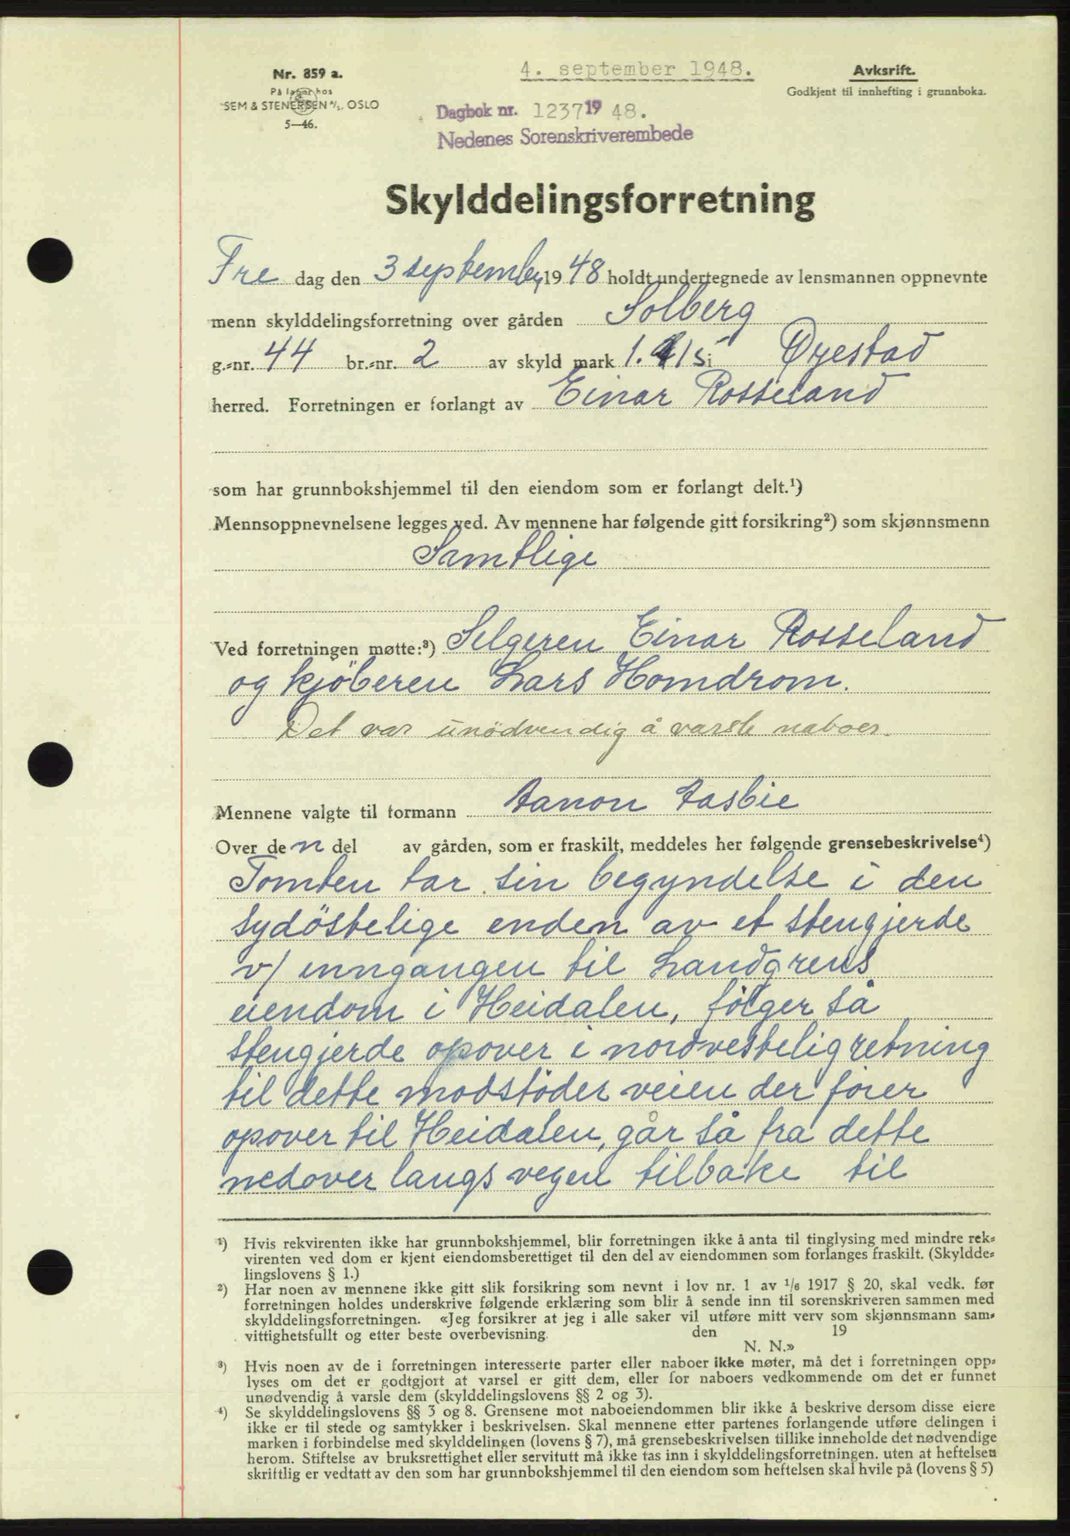 Nr. 859 a.
På lager hos
SEM & STENERSEN A/S. OSLO
5—46.
4. september 1948.
Avksrift.
Godkjent til innhefting i grunnboka.
Dagbok nr. 1237 19 48.
Nedenes Sorenskriverembede
Skylddelingsforretning
Fre dag den 3 september 19 48 holdt undertegnede av lensmannen oppnevnte
menn skylddelingsforretning over gården Solberg
g.-nr. 44 br.-nr. 2 av skyld mark i Øyestad
herred. Forretningen er forlangt av Einar Rosseland
som har grunnbokshjemmel til den eiendom som er forlangt delt.¹)
Mennsoppnevnelsene legges ved. Av mennene har følgende gitt forsikring²) som skjønnsmenn
Samtlige
Ved forretningen møtte:³) Selgeren Einar Rosseland
og kjöberen Lars Homdrom.
Det var unödvendig å varsle naboer.
Mennene valgte til formann Aanon Aasbie
Over de n del av gården, som er fraskilt, meddeles her følgende grensebeskrivelse⁴)
Tomten tar sin begyndelse i den
sydöstelige enden av et stengjerde
v/ inngangen til Landgrens
eiendom i Heidalen, fölger så
stengjerde opover i nordvestelig retning
til dette modstöder veien der förer
opover til Heidalen, går så fra dette
nedover langs vegen tilbake til
¹) Hvis rekvirenten ikke har grunnbokshjemmel, blir forretningen ikke å anta til tinglysing med mindre rek-
virenten ved dom er kjent eiendomsberettiget til den del av eiendommen som forlanges fraskilt. (Skyldde-
lingslovens § 1.)
²) Har noen av mennene ikke gitt slik forsikring som nevnt i lov nr. 1 av 1/6 1917 § 20, skal vedk. før
forretningen holdes underskrive følgende erklæring som blir å sende inn til sorenskriveren sammen med
skylddelingsforretningen. «Jeg forsikrer at jeg i alle saker vil utføre mitt verv som skjønnsmann sam-
vittighetsfullt og etter beste overbevisning. den 19
N. N.»
³) Hvis noen av de i forretningen interesserte parter eller naboer ikke møter, må det i forretningen opp-
lyses om det er godtgjort at varsel er gitt dem, eller for naboers vedkommende om det er funnet
unødvendig å varsle dem (skylddelingslovens §§ 2 og 3).
⁴) Se skylddelingslovens §§ 3 og 8. Grensene mot naboeiendommen blir ikke å beskrive dersom disse eiere
ikke er til stede og samtykker i beskrivelsen. Skal mennene etter partenes forlangende utføre delingen i
marken i forbindelse med skylddelingen (lovens § 7), må grensebeskrivelsen tillike inneholde det nødvendige
herom. Stiftelse av bruksrettighet eller servitutt må ikke tas inn i skylddelingsforretningen. uten at heftelsen
skriftlig er vedtatt av den som har grunnbokshjemmel til den eiendom som heftelsen skal hvile på (lovens § 5)